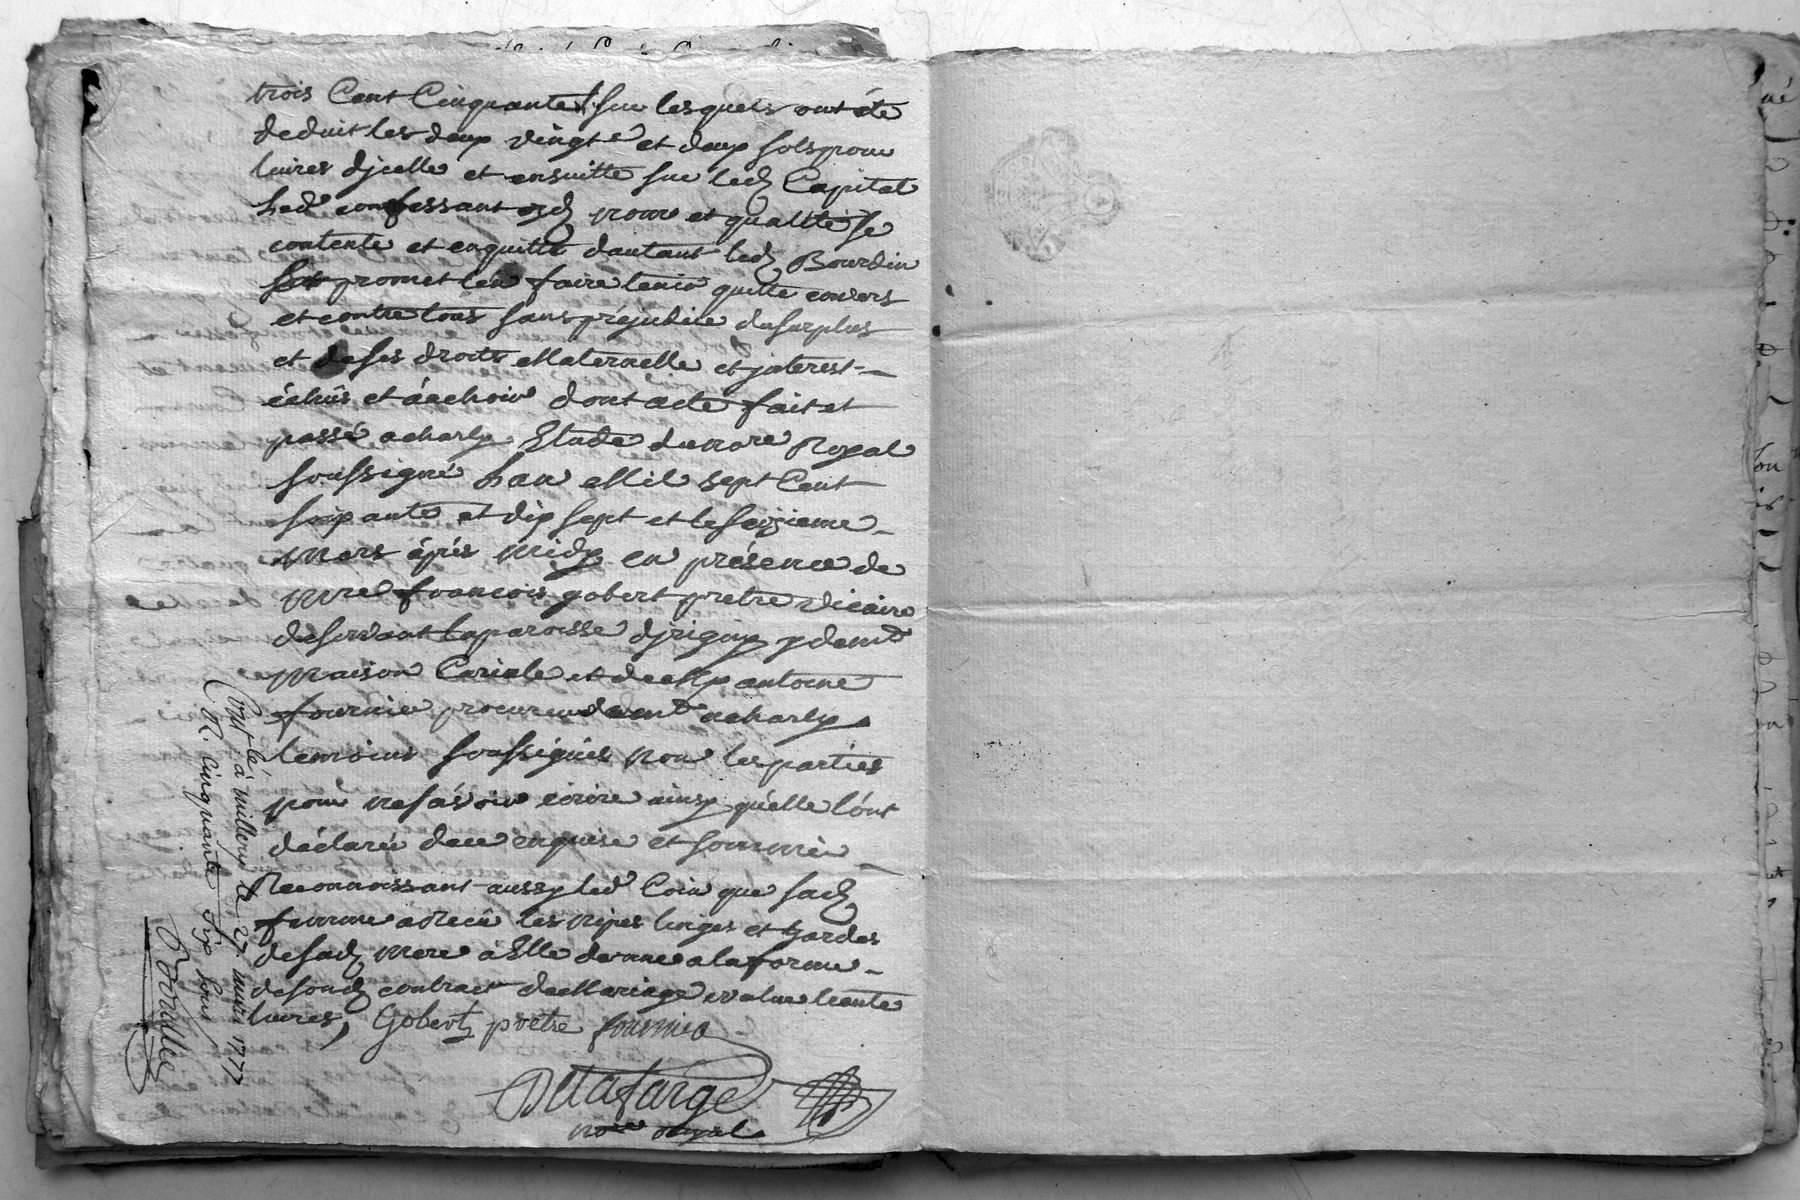 trois Cent Cinquante# sur lesquels ont éte
deduit les deux vingt et deux sols pour
livres dicelle et ensuitte sur led. Capital
led. confessant esd. nom et qualité se
contente et enquitte dautant led. Bourdin
promet len faire tenir quitte envers
et contre tous sans prejudice du surplus
et de ses droits Maternelle et jnterest
échûs et áechoir dont acte fait et
passé a charly Etude du nore Royal
soussigné Lan Mil sept Cent
soixante et dix sept et le seizieme
Mars áprés Midy en présence de
Mre françois gobert pretre vicaire
deservant laparoisse djrigny y demt
Maison Curiale et de Mr antoine
fournier procureur demt acharly
temoins soussignés non les parties
pour ne sávoir écrire ainsy qu'elle l'ont
déclaré dece enquise et sommée
Reconnoissant aussy led. Coin que sad.
femme a Recû les nipes linges et hardes
de sad. mere à Elle donné a la forme
de sond. contract de Mariage evalue trente
livres, Gobert prêtre fournier
Delafarge
nore royal
Cont.lé à millery le 27. mars 1777
R. cinquante six sous